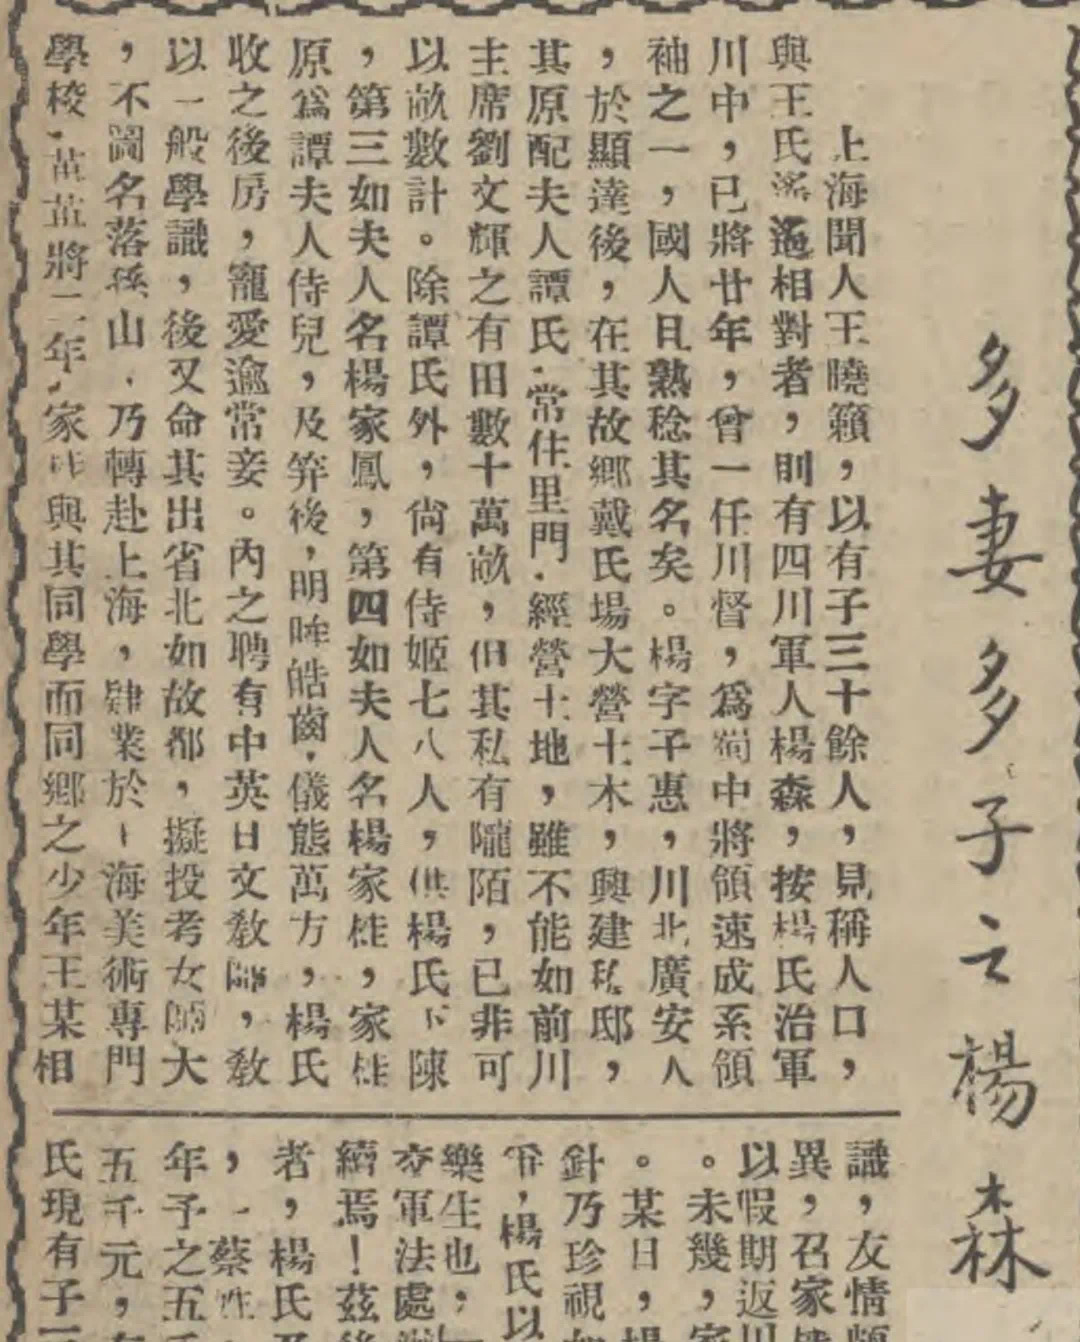 多妻多子之楊森
上海聞人王曉籟，以有子三十餘人，見稱人口，
與王氏遙遙相對者，則有四川軍人楊森，按楊氏治軍
川中，已將廿年，曾一任川督，爲蜀中將領速成系領
袖之一，國人且熟稔其名矣。楊字子惠，川北廣安人
，於顯達後，在其故鄉戴氏場大營土木，興建私邸，
其原配夫人譚氏，常住里門，經營土地，雖不能如前川
主席劉文輝之有田數十萬畝，但其私有隴陌，已非可
以畝數計。除譚氏外，尙有侍姬七八人，供楊氏下陳
，第三如夫人名楊家鳳，第四如夫人名楊家桂，家桂
原爲譚夫人侍兒，及笄後，明眸皓齒，儀態萬方，楊氏
收之後房，寵愛逾常妾。內之聘有中英日文敎師，敎
以一般學識，後又命其出省北如故都，擬投考女師大
，不圖名落孫山，乃轉赴上海，肄業於上海美術專門
學校，荏苒將二年，家桂與其同學而同鄉之少年王某相
識，友情
異，召家
以假期返川
。未幾，家
。某日，楊
針乃珍視
楊氏以
樂生也，
夯軍法處
續焉！茲後
者，楊氏
，一蔡姓
年予之五
五千元，
氏現有子